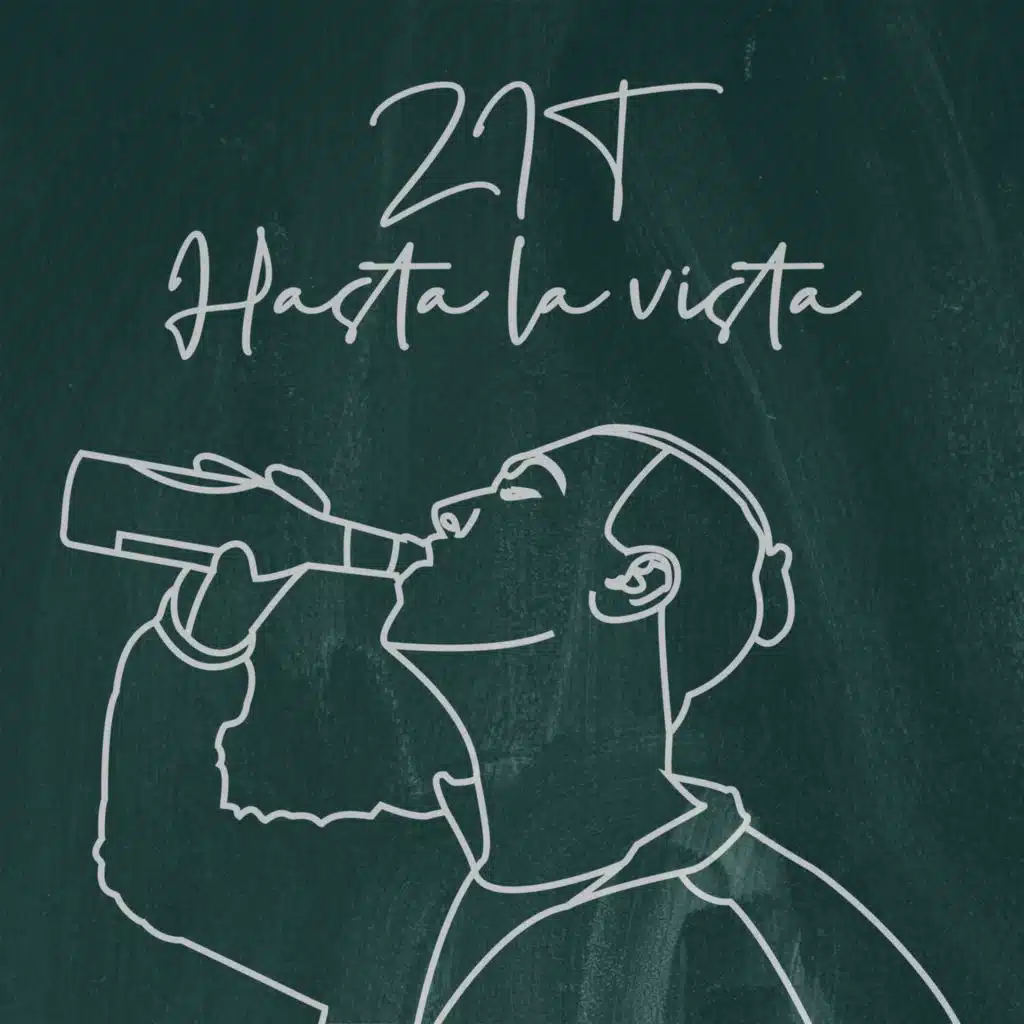 ZIT
Hasta la vista